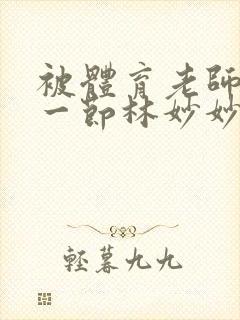 被體育老師
一節林妙妙
輕暮九九